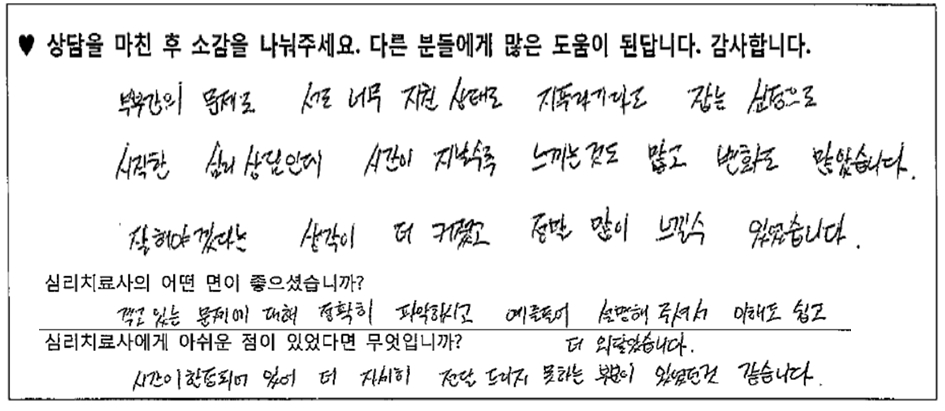 ♥ 상담을 마친 후 소감을 나눠주세요. 다른 분들에게 많은 도움이 된답니다. 감사합니다.
부부간의 문제로 서로 너무 지친 상태로 지푸라기라도 잡는 심정으로
시작한 심리상담인데 시간이 지날수록 느끼는것도 많고 변화도 많았습니다.
잘해야겠다는 생각이 더 커졌고 정말 많이 느낄수 있었습니다.
심리치료사의 어떤 면이 좋으셨습니까?
겪고 있는 문제에 대해 정확히 파악하시고 예를들어 설명해 주셔서 이해도 쉽고
심리치료사에게 아쉬운 점이 있었다면 무엇입니까?
더 와닿았습니다.
시간이 한정되어 있어 더 자세히 전달 드리지 못하는 부분이 있었던것 같습니다.